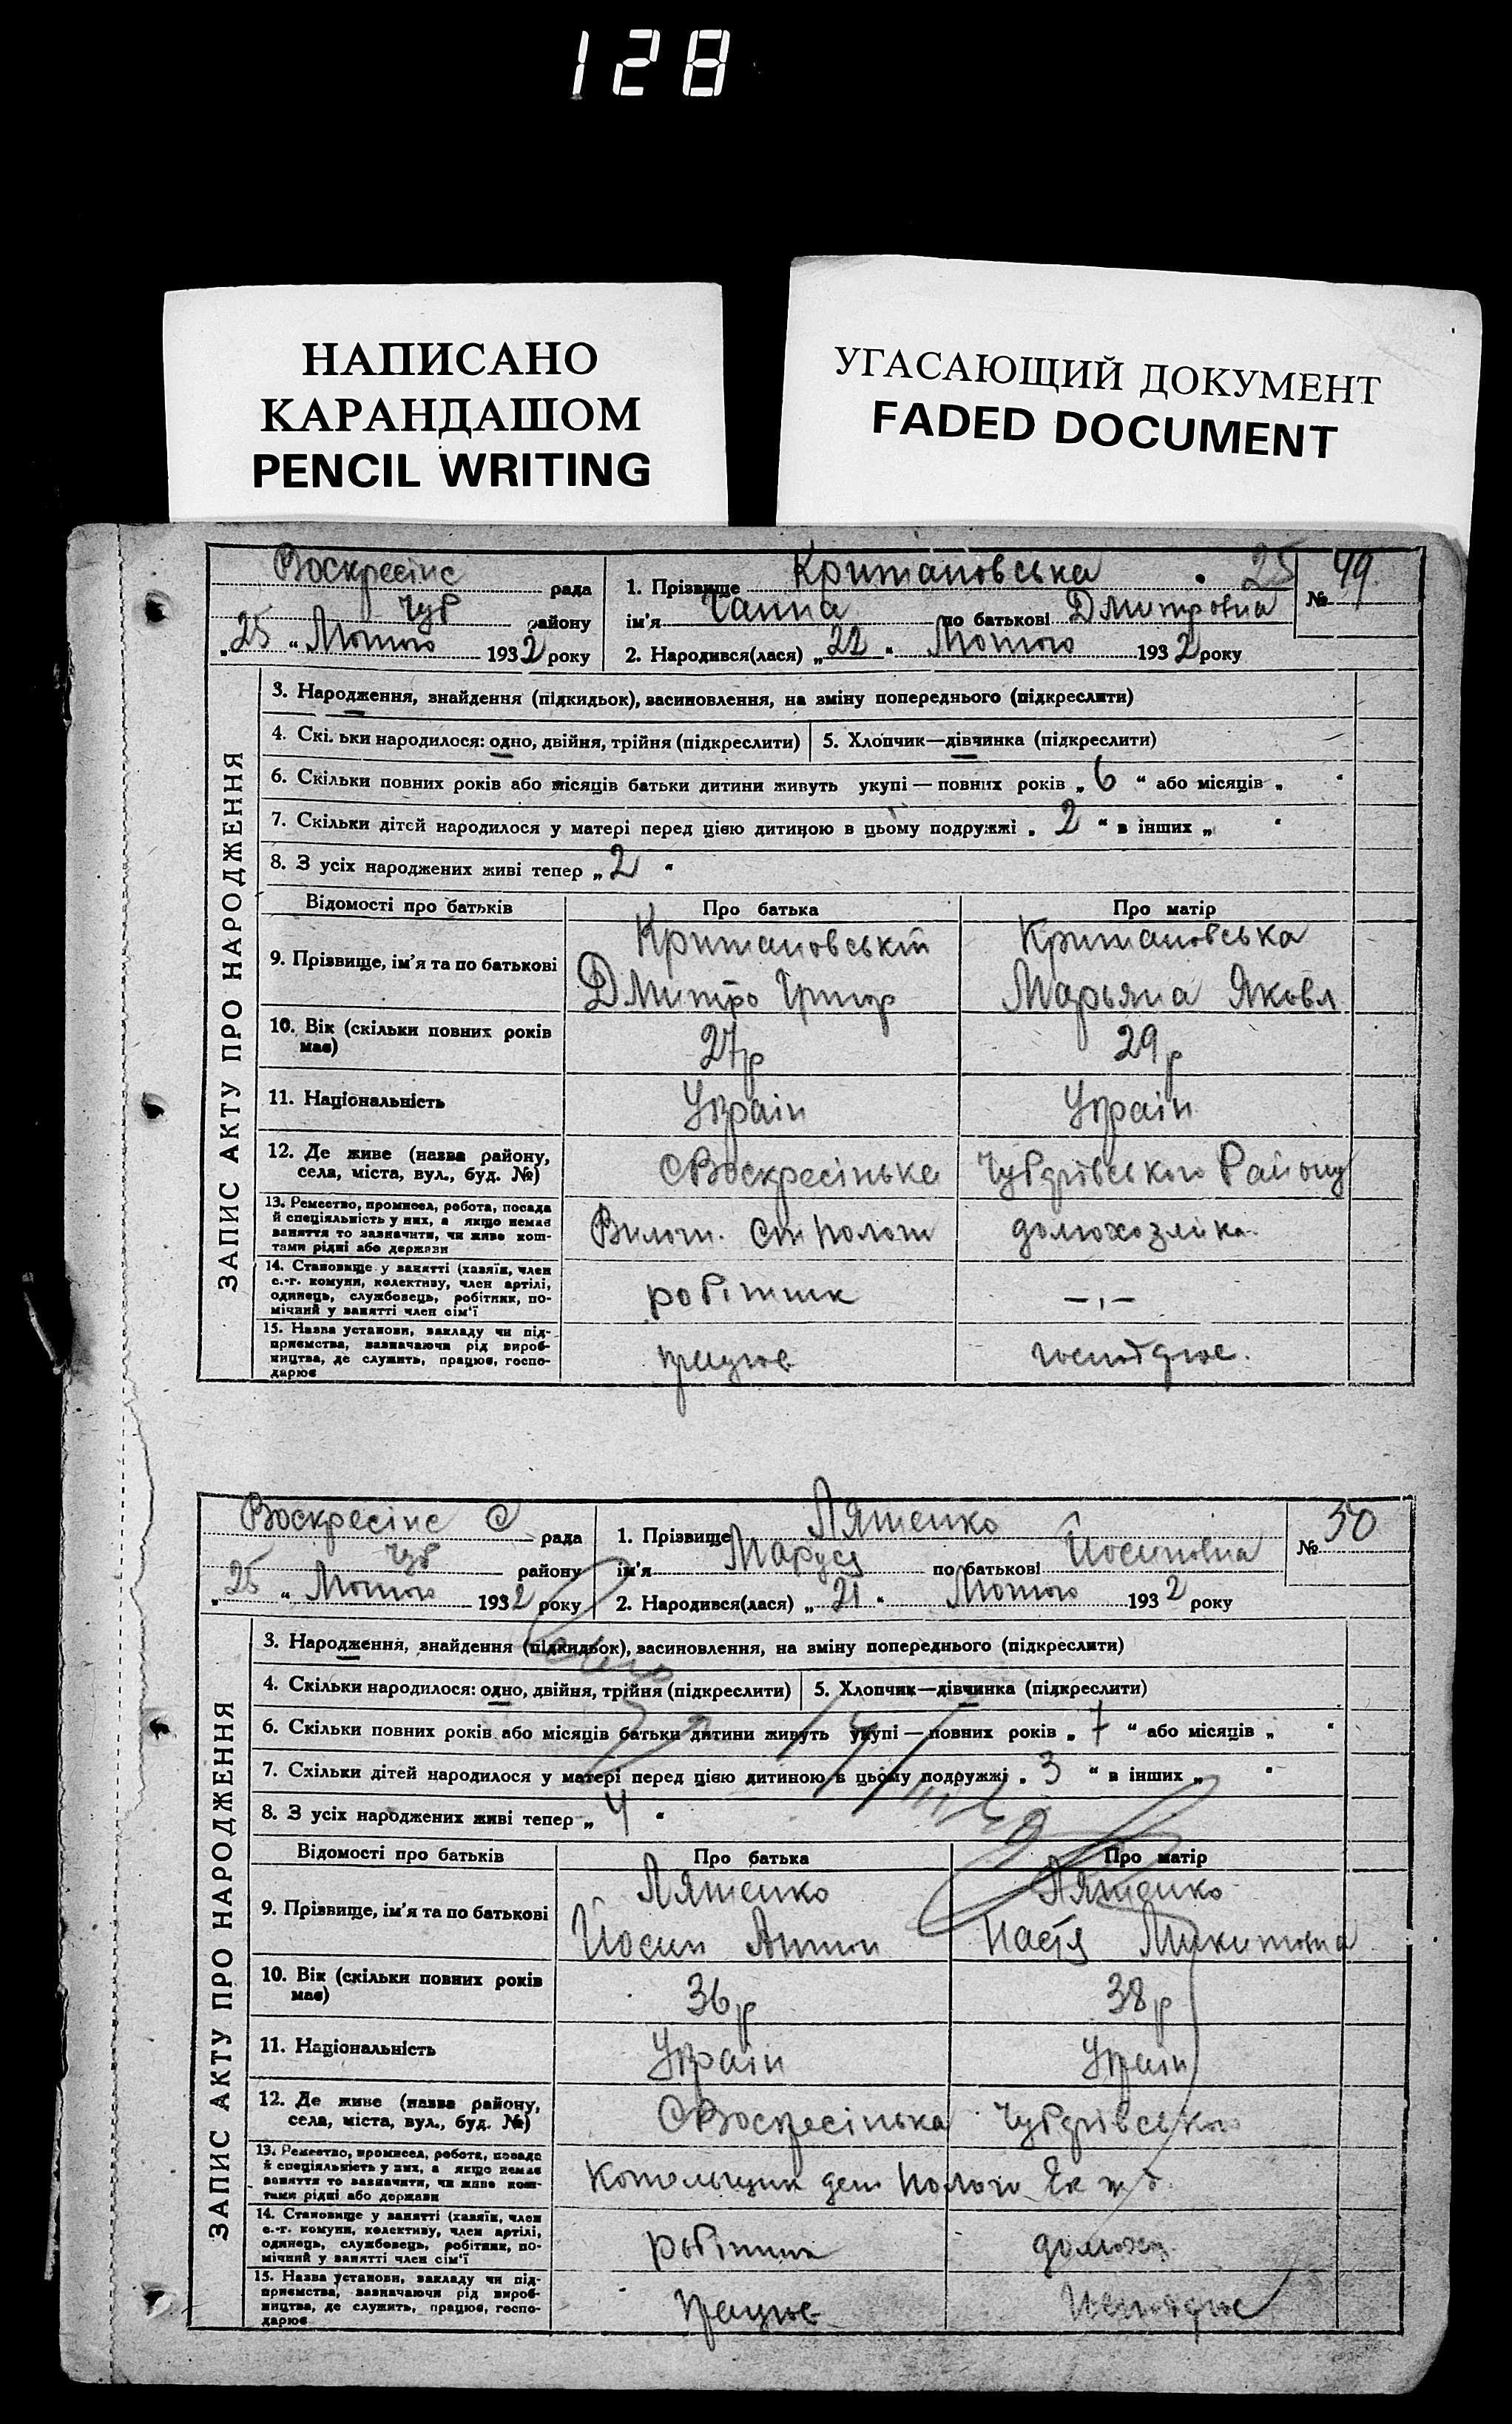 128
НАПИСАНО
КАРАНДАШОМ
PENCIL WRITING
УГАСАЮЩИЙ ДОКУМЕНТ
FADED DOCUMENT
ЗАПИС АКТУ ПРО НАРОДЖЕННЯ
Воскресінс рада
Чуб району
„25 “ Лютого 1932 року
1. Прізвище Критановська 25
ім’я Ганна по батькові Дмитровна
2. Народився(лася) „22“ Лютого 1932 року
№ 49
3. Народження, знайдення (підкидьок), васиновлення, на зміну попереднього (підкреслити)
4. Скі. ьки народилося: одно, двійня, трійня (підкреслити) 5. Хлопчик—дівчинка (підкреслити)
6. Скільки повних років або місяців батьки дитини живуть укупі — повних років „ 6 “ або місяців „ “
7. Скільки дітей народилося у матері перед цією дитиною в цьому подружжі „ 2 “ в інших „ “
8. З усіх народжених живі тепер „ 2 “
Відомості про батьків Про батька Про матір
9. Прізвище, ім’я та по батькові
Критановський Критановська
Дмитро Григор Марьяна Яковл
10. Вік (скільки повних років
має) 27р 29р
11. Національність Україн Україн
12. Де живе (назва району,
села, міста, вул., буд. №) С Воскресінька Чубарівського Району
13. Ремество, промисел, робота, посада
й спеціяльність у них, а якщо немає
заняття то зазначити, чи живе кош-
тами рідні або держави
Ст Пологи домохозяйка.
14. Становище у занятті (хазяїн, член
с.-г. комуни, колективу, член артілі,
одинець, службовець, робітник, по-
мічний у занятті член сім’ї
робітник —„—
15. Назва установи, закладу чи під-
приємства, зазначаючи рід вироб-
ництва, де служить, працює, госпо-
дарює
працює
ЗАПИС АКТУ ПРО НАРОДЖЕННЯ
Воскресінс С рада
Чуб району
„25 “ Лютого 1932 року
1. Прізвище Ляшенко
ім’я Маруся по батькові Йосиповна
2. Народився(лася) „21“ Лютого 1932 року
№ 50
3. Народження, знайдення (підкидьок), васиновлення, на зміну попереднього (підкреслити)
4. Скільки народилося: одно, двійня, трійня (підкреслити) 5. Хлопчик—дівчинка (підкреслити)
6. Скільки повних років або місяців батьки дитини живуть укупі — повних років „ 7 “ або місяців „ “
7. Скільки дітей народилося у матері перед цією дитиною в цьому подружжі „ 3 “ в інших „ “
8. З усіх народжених живі тепер „ 4 “
Відомості про батьків Про батька Про матір
9. Прізвище, ім’я та по батькові
Ляшенко Ляшенко
Йосип Антон Настя Микитовна
10. Вік (скільки повних років
має) 36р 38р
11. Національність Україн Україн
12. Де живе (назва району,
села, міста, вул., буд. №) С Воскресінька Чубарівського
13. Ремество, промисел, робота, посада
й спеціяльність у них, а якщо немає
заняття то зазначити, чи живе кош-
тами рідні або держави
Котельщик депо Пологи Ек ж д.
14. Становище у занятті (хазяїн, член
с.-г. комуни, колективу, член артілі,
одинець, службовець, робітник, по-
мічний у занятті член сім’ї
робітник домохаз.
15. Назва установи, закладу чи під-
приємства, зазначаючи рід вироб-
ництва, де служить, працює, госпо-
дарює
працює